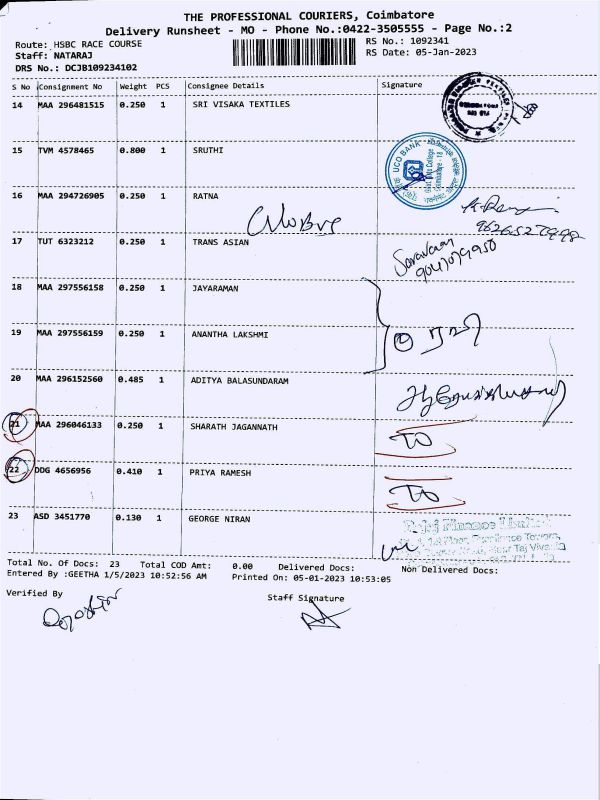 THE PROFESSIONAL COURIERS, Coimbatore
Delivery Runsheet - MO - Phone No.:0422-3505555 - Page No.:2
Route: HSBC RACE COURSE
RS No.: 1092341
Staff: NATARAJ
RS Date: 05-Jan-2023
DRS No.: DCJB109234102
S No Consignment No Weight PCS Consignee Details Signature
14 MAA 296481515 0.250 1 SRI VISAKA TEXTILES
15 TVM 4578465 0.800 1 SRUTHI
UCO BANK
16 MAA 294726905 0.250 1 RATNA
17 TUT 6323212 0.250 1 TRANS ASIAN
Saravanan
18 MAA 297556158 0.250 1 JAYARAMAN
19 MAA 297556159 0.250 1 ANANTHA LAKSHMI
20 MAA 296152560 0.485 1 ADITYA BALASUNDARAM
21 MAA 296046133 0.250 1 SHARATH JAGANNATH
TO
22 DDG 4656956 0.410 1 PRIYA RAMESH
TO
23 ASD 3451770 0.130 1 GEORGE NIRAN
Bajaj Finance Limited
Total No. Of Docs: 23 Total COD Amt: 0.00 Delivered Docs: Non Delivered Docs:
Entered By :GEETHA 1/5/2023 10:52:56 AM Printed On: 05-01-2023 10:53:05
Verified By
Staff Signature